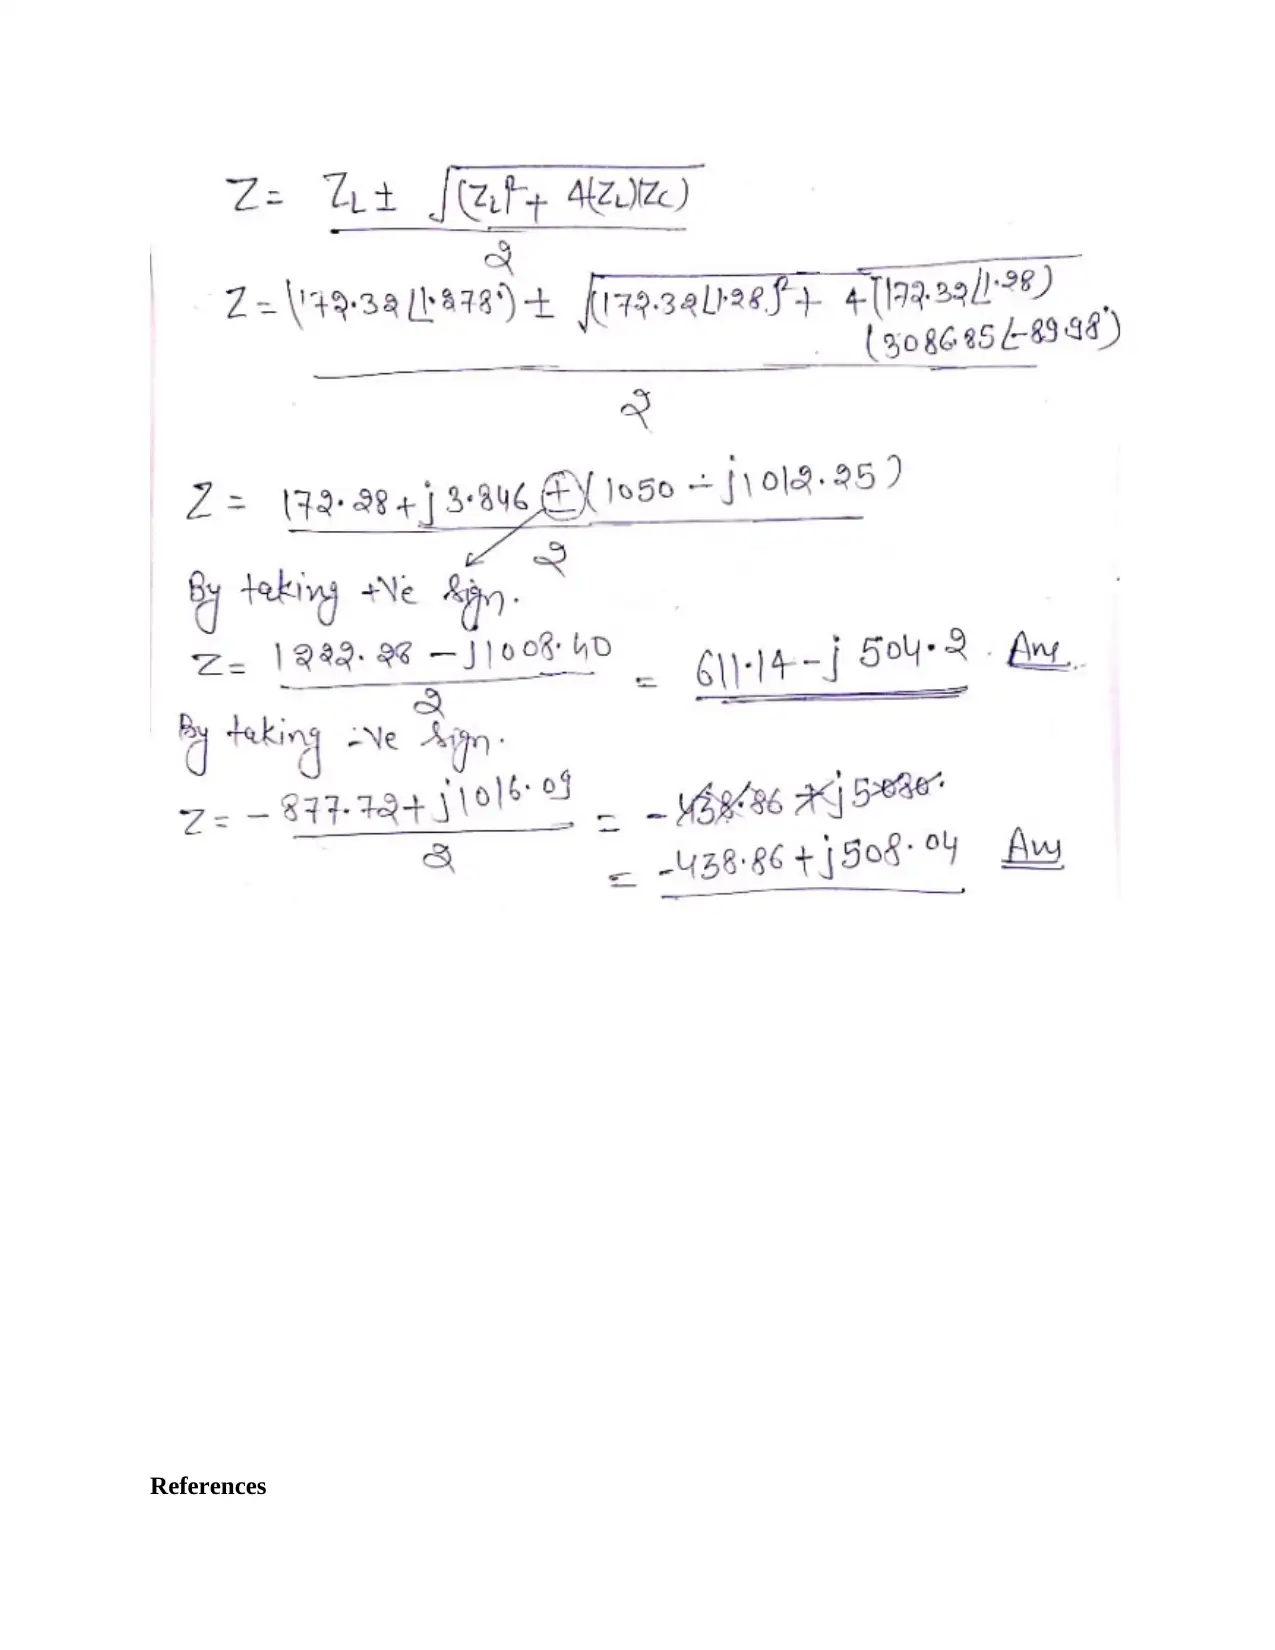 Z = ZL ± √(ZL)² + 4(ZL)(ZC)
2
Z = (172.32∠1.278°) ± √(172.32∠1.28)² + 4(172.32∠1.28)
(3086.85∠-89.98°)
2
Z = 172.28 + j 3.846 ± (1050 - j1012.25)
2
By taking +ve sign.
Z = 1222.28 - j1008.40 = 611.14 - j 504.2 Ans.
2
By taking -ve sign.
Z = -877.72 + j1016.09 = -438.86 + j5080.
2
= -438.86 + j508.04 Ans
References